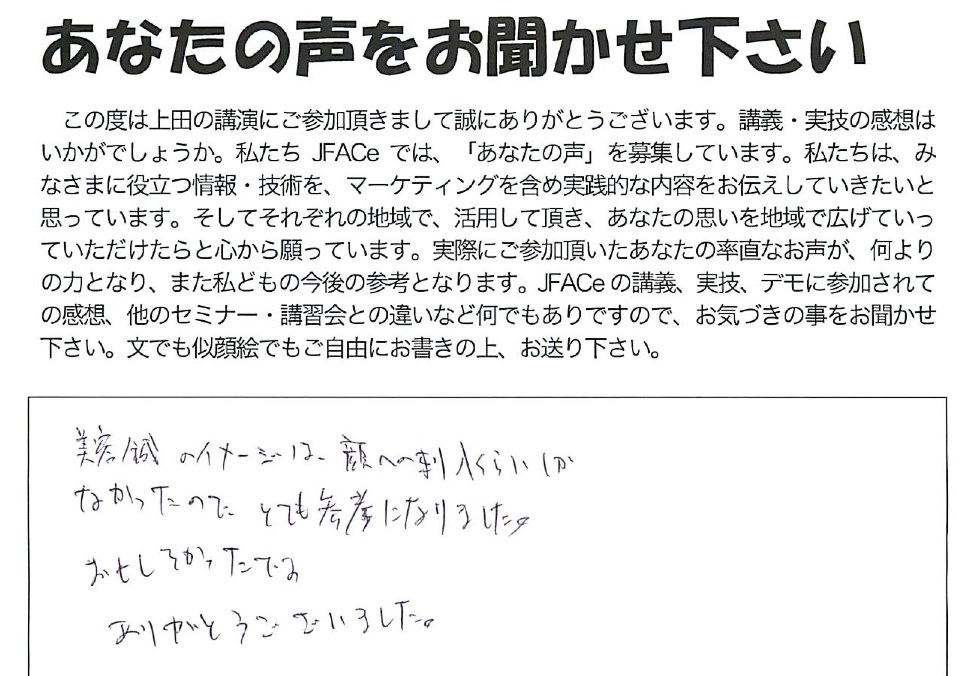 あなたの声をお聞かせ下さい
この度は上田の講演にご参加頂きまして誠にありがとうございます。講義・実技の感想は
いかがでしょうか。私たち JFACe では、「あなたの声」を募集しています。私たちは、み
なさまに役立つ情報・技術を、マーケティングを含め実践的な内容をお伝えしていきたいと
思っています。そしてそれぞれの地域で、活用して頂き、あなたの思いを地域で広げていっ
ていただけたらと心から願っています。実際にご参加頂いたあなたの率直なお声が、何より
の力となり、また私どもの今後の参考となります。JFACe の講義、実技、デモに参加されて
の感想、他のセミナー・講習会との違いなど何でもありですので、お気づきの事をお聞かせ
下さい。文でも似顔絵でもご自由にお書きの上、お送り下さい。
美容鍼のイメージは、顔への刺入くらいしか
なかったので、とても参考になりました。
おもしろかったです
ありがとうございました。